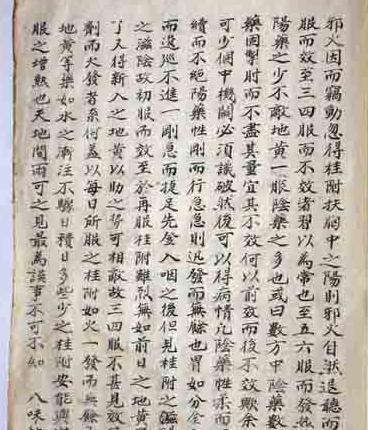 邪火因而竊動忽得桂附扶胸中之陽則邪火自然退聽而
服而效至三四服而不效者習以為常也至五六服而發熱
陽藥之少不敵地黃一服陰藥之多也或曰數方中陰藥數
藥固掣肘而不盡其量宜其不效何以前效而後不效歟余
可少個中機關必須識破然後可以得病情凡陰藥性柔而
續而不絕陽藥性剛而行急急則迅發而無餘也冒如分金
而逡巡不進一剛急而捷足先登入咽之後但見桂附之
之滋陰故初服而效至於再服桂附雖烈無如前日之地黃
了又得新入之地黃以助之勢可相敵故三四服不甚見效
劑而火發者系何蓋以每日所服之桂附如火一發而無餘
地黃等藥如水之漸注不驟日積日多些少之桂附安能與
服之增熱也天地間兩可之見最為誤事不可不知 八味